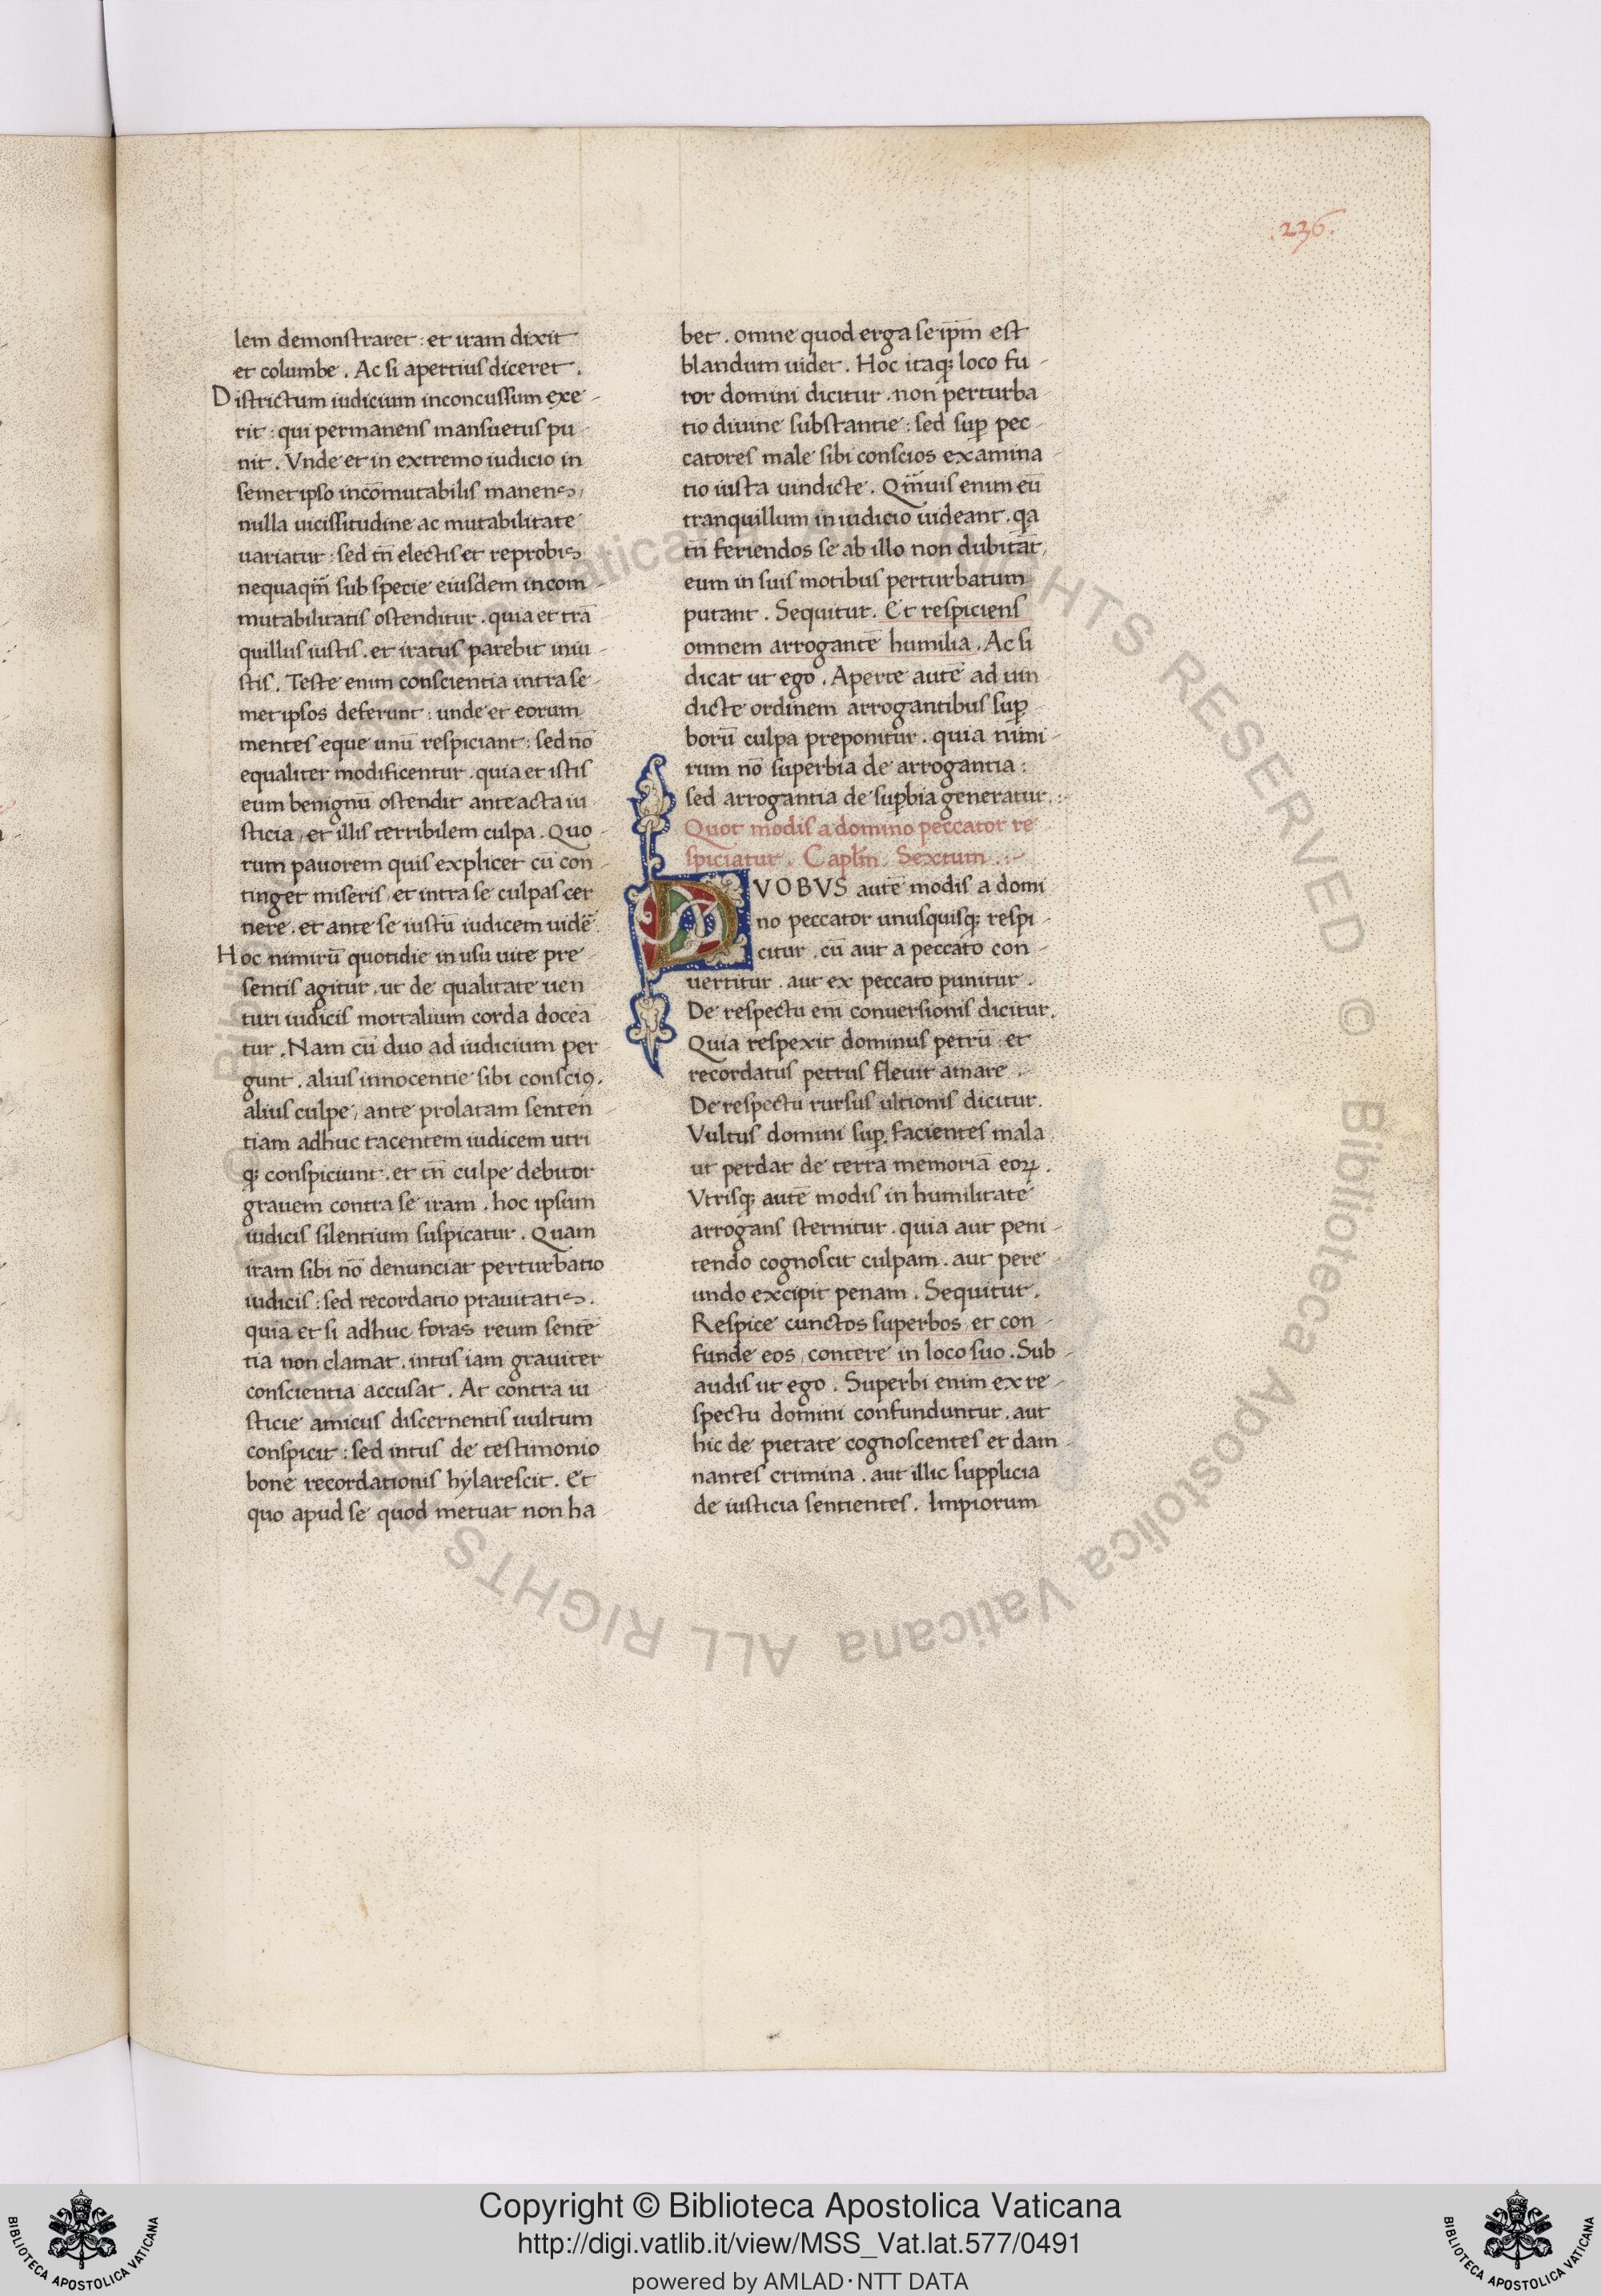 .236.
lem demonstraret : et iram dixit
et columbe . Ac si apertius diceret .
Districtum iudicium inconcussum exe-
rit : qui permanens mansuetus pu-
nit . Vnde et in extremo iudicio in
semetipso incōmutabilis manens,
nulla uicissitudine ac mutabilitate
uariatur : sed tn̄ electis et reprobis
nequaqm̄ sub specie eiusdem incom-
mutabilitatis ostenditur . quia et trā
quillus iustis . et iratus parebit iniu-
stis . Teste enim conscientia intra se-
met ipsos deferunt : unde et eorum
mentes eque unū respiciant : sed nō
equaliter modificentur . quia et istis
eum benignū ostendit ante acta iu
sticia , et illis terribilem culpa . Quo-
rum pauorem quis explicet cū con-
tinget miseris , et intra se culpas cer
nere . et ante se iustū iudicem uidē
Hoc nimirū quotidie in usu uite pre-
sentis agitur . ut de qualitate uen
turi iudicis mortalium corda docea
tur . Nam cū duo ad iudicium per
gunt . alius innocentie sibi consciꝰ .
alius culpe , ante prolatam senten
tiam adhuc tacentem iudicem utri
qꝫ conspiciunt . et tn̄ culpe debitor
grauem contra se iram . hoc ipsum
iudicis silentium suspicatur . Quam
iram sibi nō denunciat perturbatio
iudicis : sed recordatio prauitatis .
quia et si adhuc foras reum sentē
tia non clamat . intus iam grauiter
conscientia accusat . At contra iu
sticie amicus discernentis uultum
conspicit : sed intus de testimonio
bone recordationis hylarescit . Et
quo apud se quod metuat non ha-
bet . omne quod erga se ip̄m est
blandum uidet . Hoc itaqꝫ loco fu-
ror domini dicitur . non perturba
tio diuine substantie : sed suꝑ pec-
catores male sibi conscios examina-
tio iusta uindicte . Qm̄uis enim eū
tranquillum in iudicio uideant . qa
tn̄ feriendos se ab illo non dubitāt,
eum in suis motibus perturbatum
putant . Sequitur . Et respiciens
omnem arrogantē humilia . Ac si
dicat ut ego . Aperte autē ad uin
dicte ordinem arrogantibus suꝑ
borū culpa preponitur . quia nimi-
rum nō superbia de arrogantia :
sed arrogantia de suꝑbia generatur .:
Quot modis a domino peccator re-
spiciatur . Caplm̄ . Sextum . :-
DVOBVS autē modis a domi
no peccator unusquisqꝫ respi-
citur . cū aut a peccato con-
uertitur . aut ex peccato punitur .
De respectu eni conuersionis dicitur .
Quia respexit dominus petrū . et
recordatus petrus fleuit amare .
De respectu rursus ultionis dicitur .
Vultus domini suꝑ facientes mala ,
ut perdat de terra memoriā eoꝝ .
Vtrisqꝫ autē modis in humilitate
arrogans sternitur . quia aut peni-
tendo cognoscit culpam . aut pere-
undo excipit penam . Sequitur .
Respice cunctos superbos et con-
funde eos , contere in loco suo . Sub-
audis ut ego . Superbi enim ex re-
spectu domini confunduntur . aut
hic de pietate cognoscentes et dam-
nantes crimina . aut illic supplicia
de iusticia sentientes . Impiorum
© Biblioteca Apostolica Vaticana ALL RIGHTS RESERVED
© Biblioteca Apostolica Vaticana ALL RIGHTS RESERVED
Copyright © Biblioteca Apostolica Vaticana
http://digi.vatlib.it/view/MSS_Vat.lat.577/0491
powered by AMLAD·NTT DATA
BIBLIOTECA APOSTOLICA VATICANA
BIBLIOTECA APOSTOLICA VATICANA